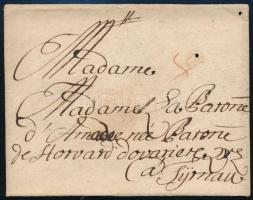 Madame
Madame La Baronne
d'Amade née Baronne
de Horvard
(a Tÿrnau